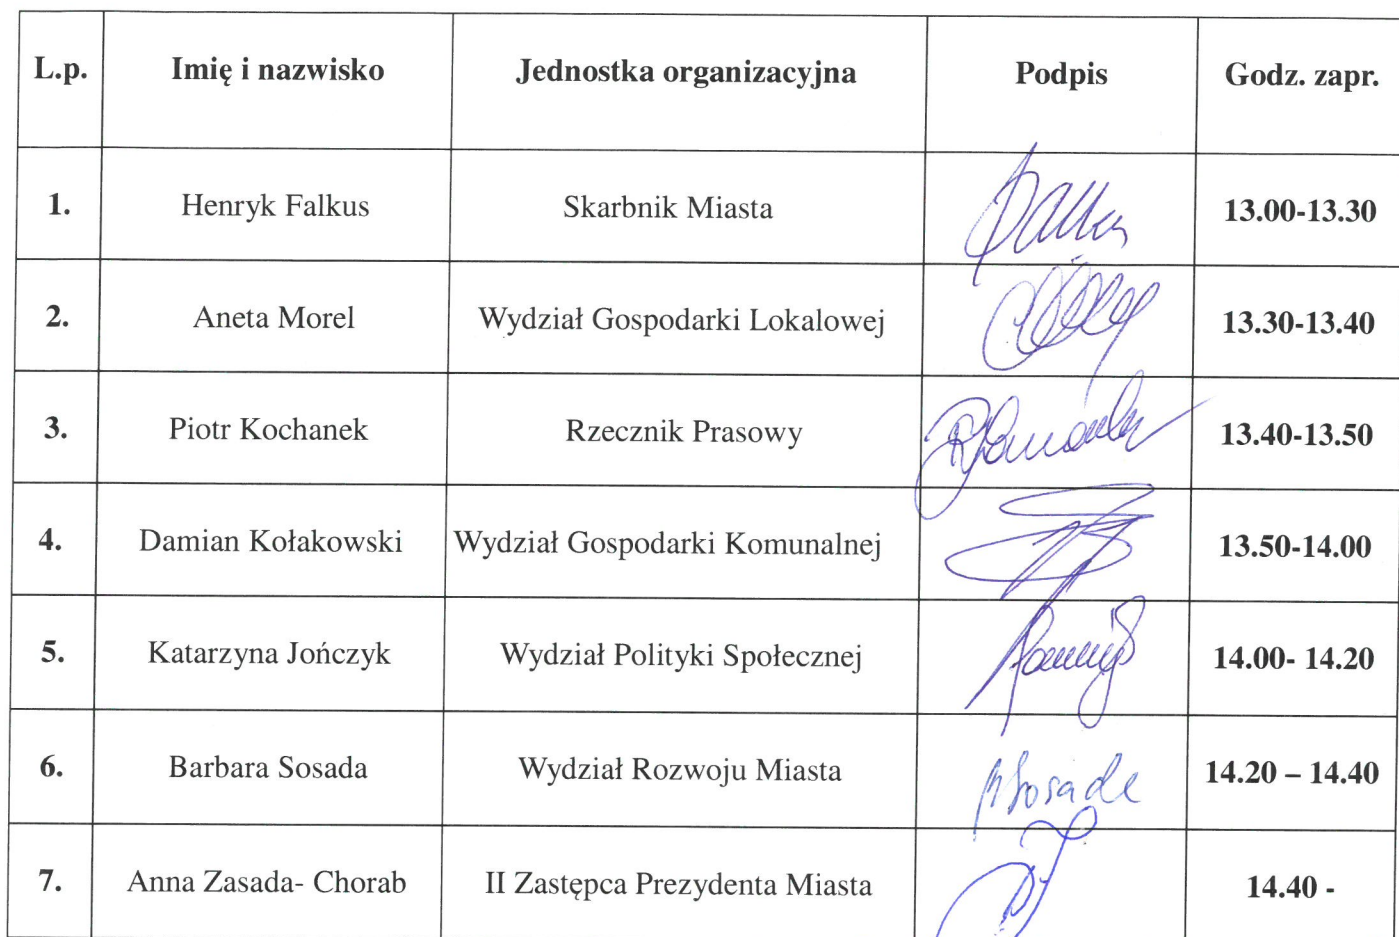 L.p. Imię i nazwisko Jednostka organizacyjna Podpis Godz. zapr.
1. Henryk Falkus Skarbnik Miasta 13.00-13.30
2. Aneta Morel Wydział Gospodarki Lokalowej 13.30-13.40
3. Piotr Kochanek Rzecznik Prasowy 13.40-13.50
4. Damian Kołakowski Wydział Gospodarki Komunalnej 13.50-14.00
5. Katarzyna Jończyk Wydział Polityki Społecznej 14.00- 14.20
6. Barbara Sosada Wydział Rozwoju Miasta 14.20 – 14.40
7. Anna Zasada- Chorab II Zastępca Prezydenta Miasta 14.40 -